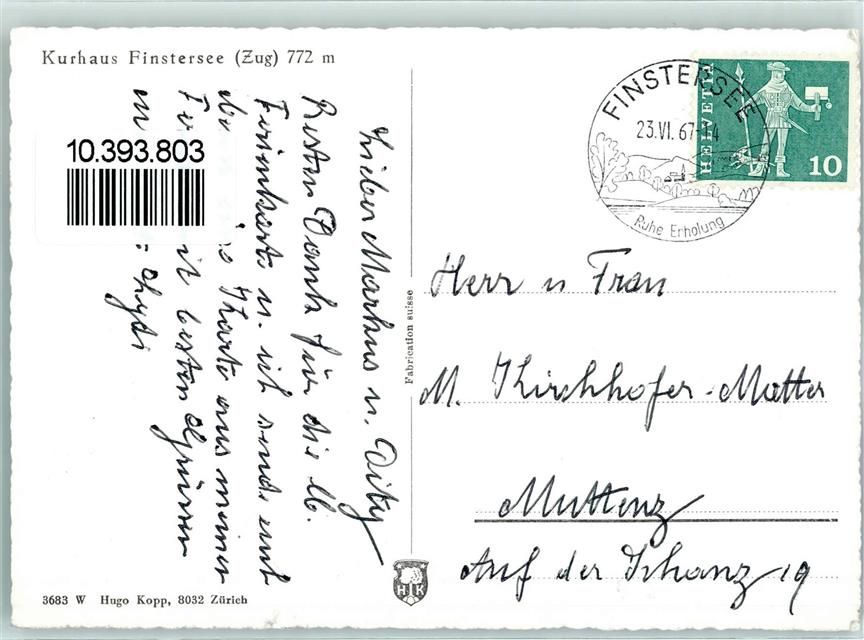 Kurhaus Finstersee (Zug) 772 m
FINSTERSEE
23.VI.67-14
Ruhe Erholung
HELVETIA
10
10.393.803
Lieber Markus u. Dity
Besten Dank für die lb.
u. ich sende euch
Karte aus meiner
it besten Grüssen
Herr u Frau
M. Kirchhofer-Matter
Muttenz
Auf der Schanz 19
Fabrication suisse
H K
3683 W Hugo Kopp, 8032 Zürich